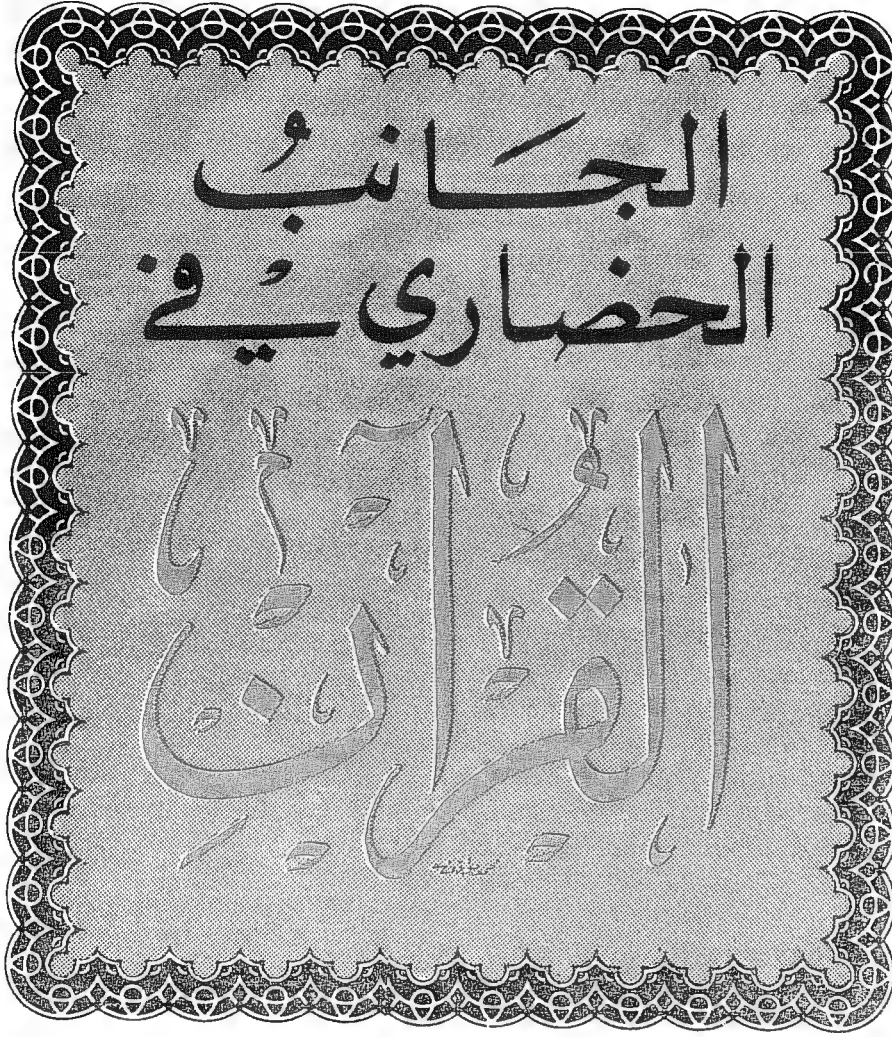 الجَانبُ
الحضاري في
القُرآنِ